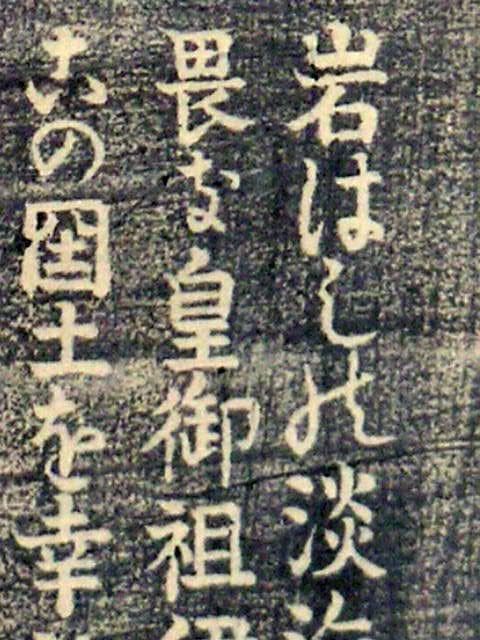 岩はしの淡
畏き皇御祖
この国土を幸